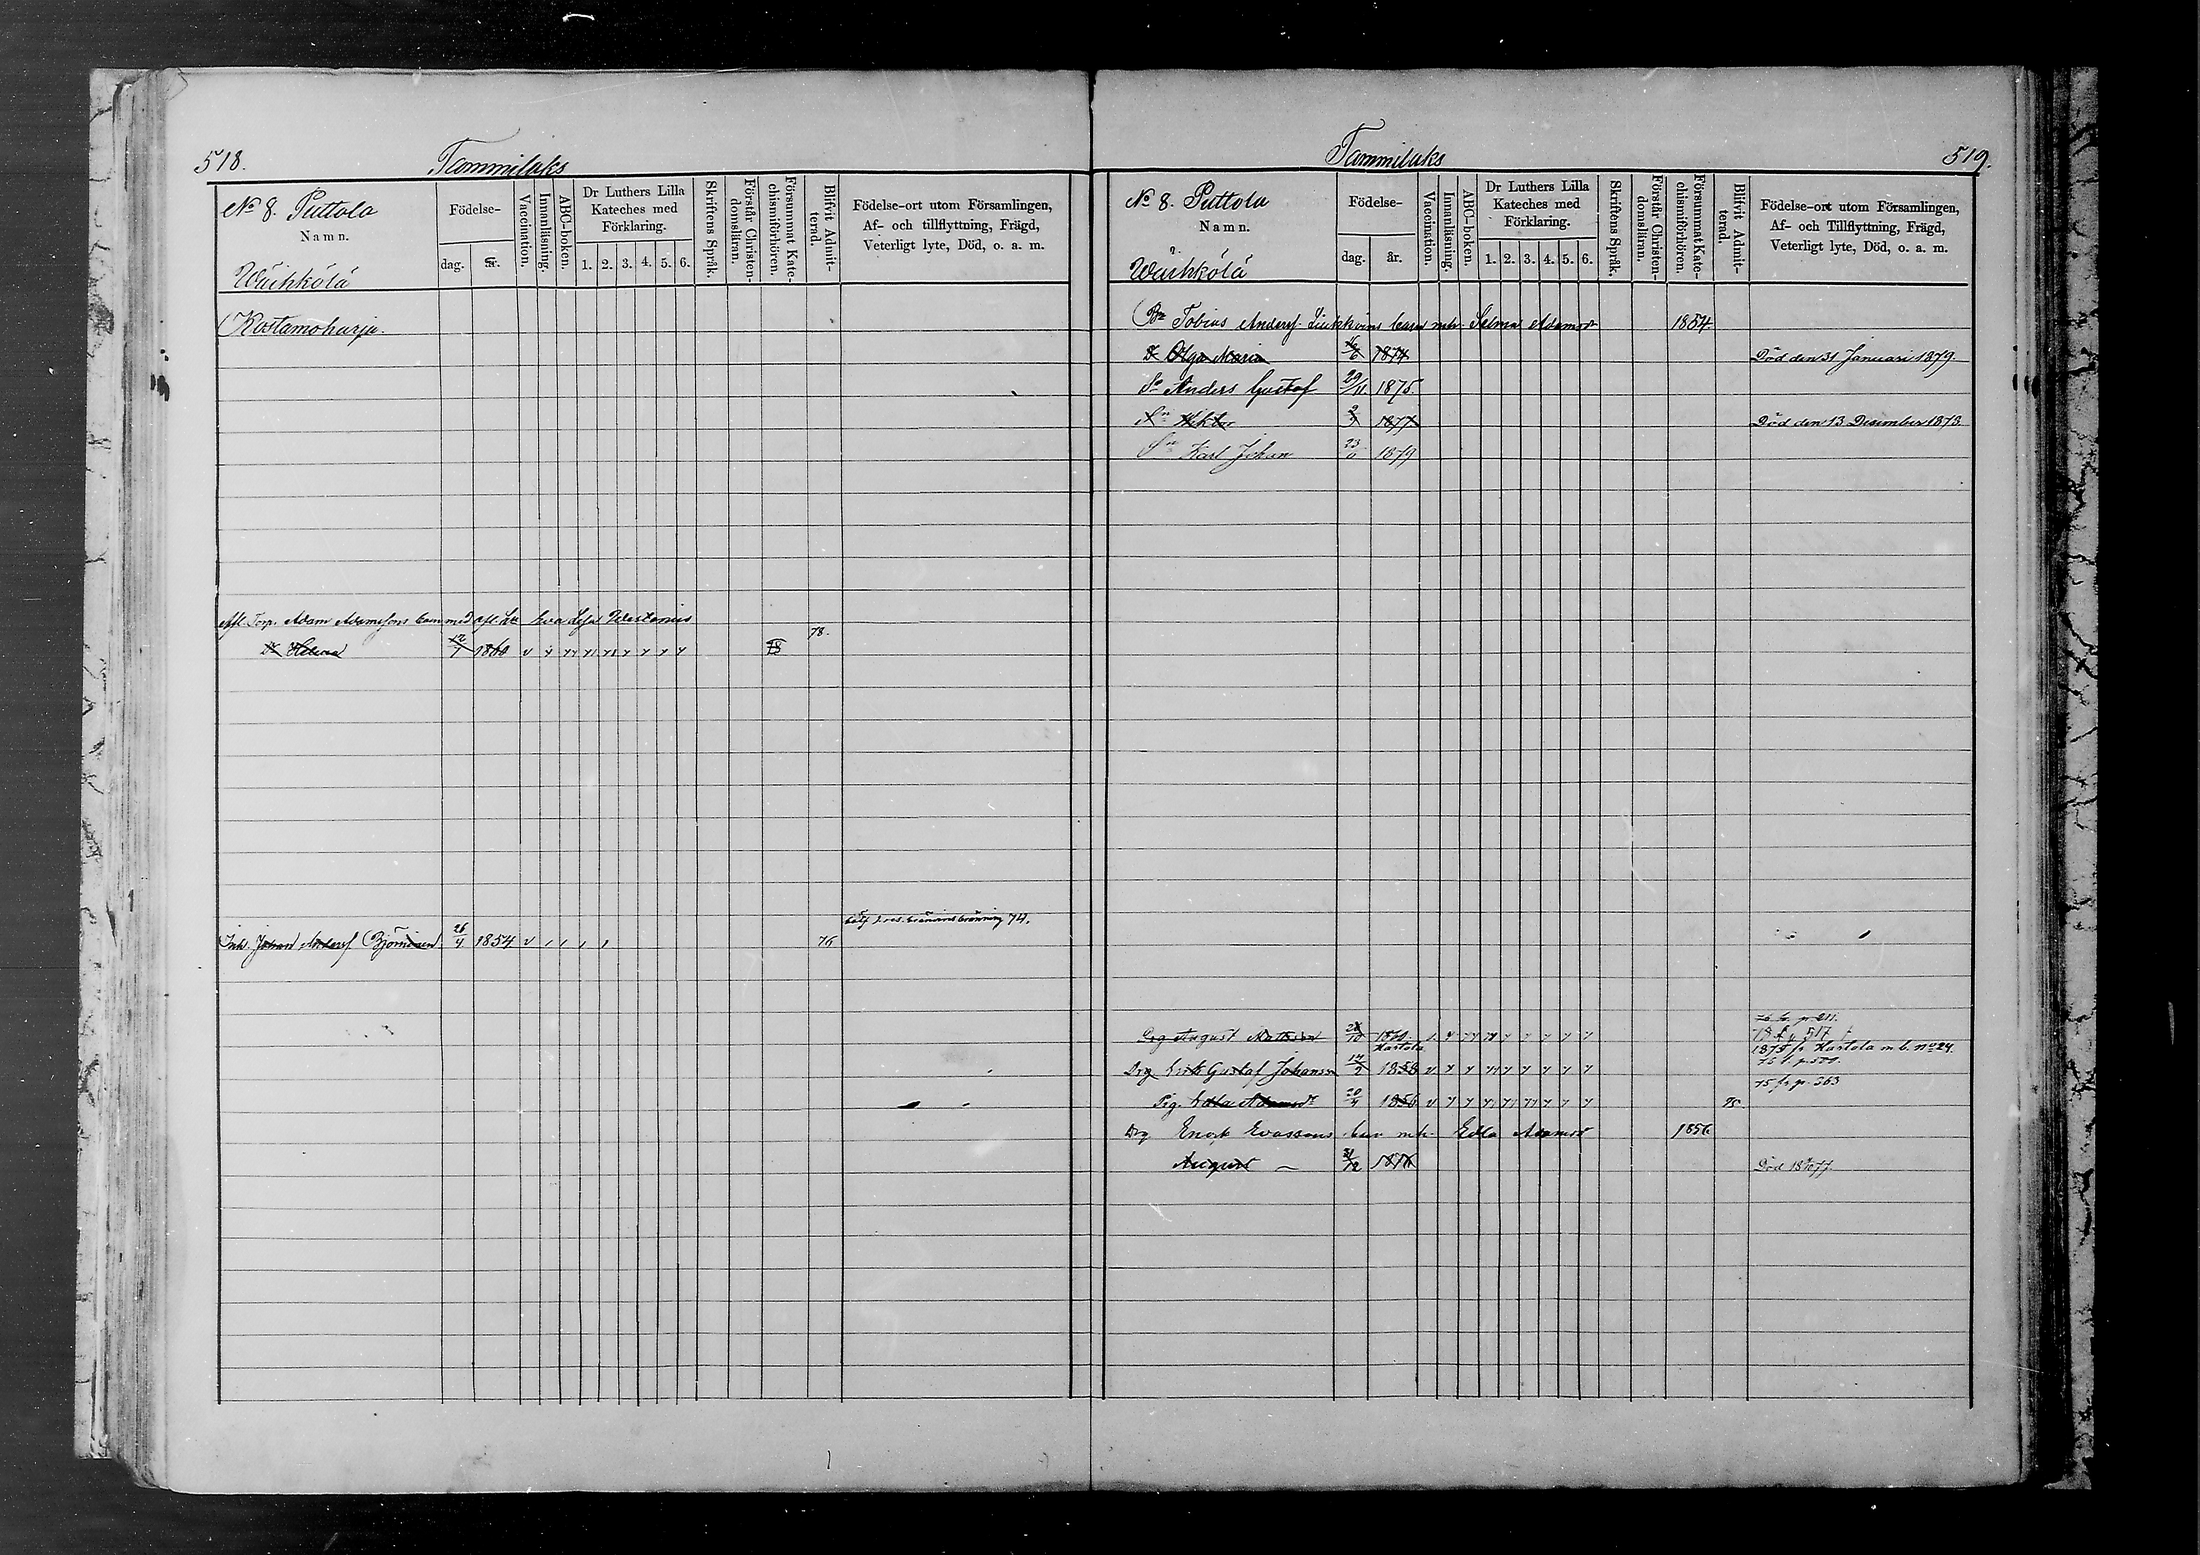 518.
Tammilaks
No 8. Puttola
Namn.
Wäihkölä
Födelse-
dag.
år.
Vaccination.
Innanläsning.
ABC-boken.
Dr Luthers Lilla
Kateches med
Förklaring.
1. 2. 3. 4. 5. 6.
Skriftens Språk.
Förstår Christen-
domsläran.
Försummat Kate-
chismiförhören.
Blifvit Admit-
terad.
Födelse-ort utom Församlingen,
Af- och tillflyttning, Frägd,
Veterligt lyte, Död, o. a. m.
Kostamoharju.
Afl. Torp. Adam Adamssons med afl.
78.
Dr Helena 1860 78
74.
Inh. Johan Andersf. Björninen 26/4 1854 76
Tammilaks
519.
No 8. Puttola
Namn.
Wäihkölä
Födelse-
dag.
år.
Vaccination.
Innanläsning.
ABC-boken.
Dr Luthers Lilla
Kateches med
Förklaring.
1. 2. 3. 4. 5. 6.
Skriftens Språk.
Förstår Christen-
domsläran.
Försummat Kate-
chismiförhören.
Blifvit Admit-
terad.
Födelse-ort utom Församlingen,
Af- och Tillflyttning, Frägd,
Veterligt lyte, Död, o. a. m.
Tobias Andersf. mh. Selma Adamsdr 1854
Dr Olga Maria 1874 Död den 31 Januari 1879.
Sn Anders Gustaf 29/11. 1875.
Sn Wiktor 1877 Död den 13 Desember 1878.
Sn Karl Johan 1879
76 p. 211.
Drg August Matsson 1860 517
Hartola
1875 fr Hartola m. b. no 24.
Drg Erik Gustaf Johansson 1858
75 fr p. 363
Pig. Edla Adamsdr 20/4 1856 75.
Drg Enok Evassons mh. Edla Adamsdr 1856
August 1876 Död